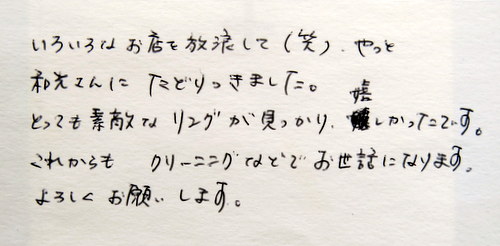 いろいろなお店を放浪して(笑)、やっと
和光さんに たどりつきました。
とっても素敵な リングが見つかり、嬉しかったです。
これからも クリーニングなどで お世話になります。
よろしく お願い します。